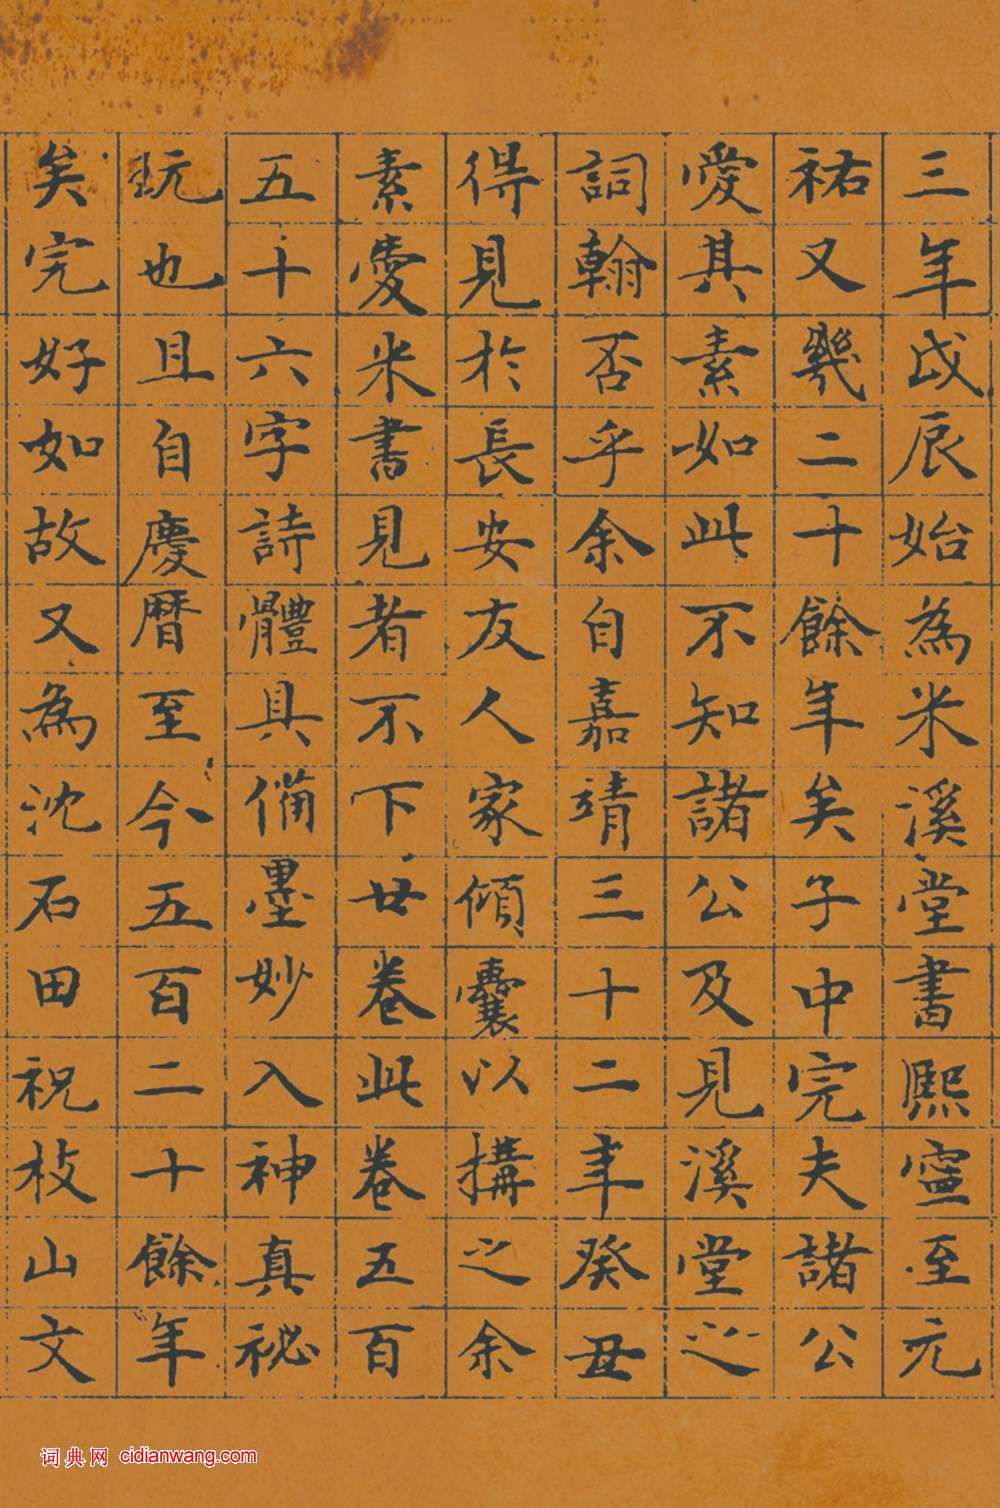 三年戊辰始為米溪堂書熙寧至元
祐又幾二十餘年矣子中完夫諸公
愛其素如此不知諸公及見溪堂之
詞翰否乎余自嘉靖三十二年癸丑
得見於長安友人家傾囊以搆之余
素愛米書見者不下廿卷此卷五百
五十六字詩體具備墨妙入神真祕
玩也且自慶曆至今五百二十餘年
矣完好如故又為沈石田祝枝山文
词典网 cidianwang.com